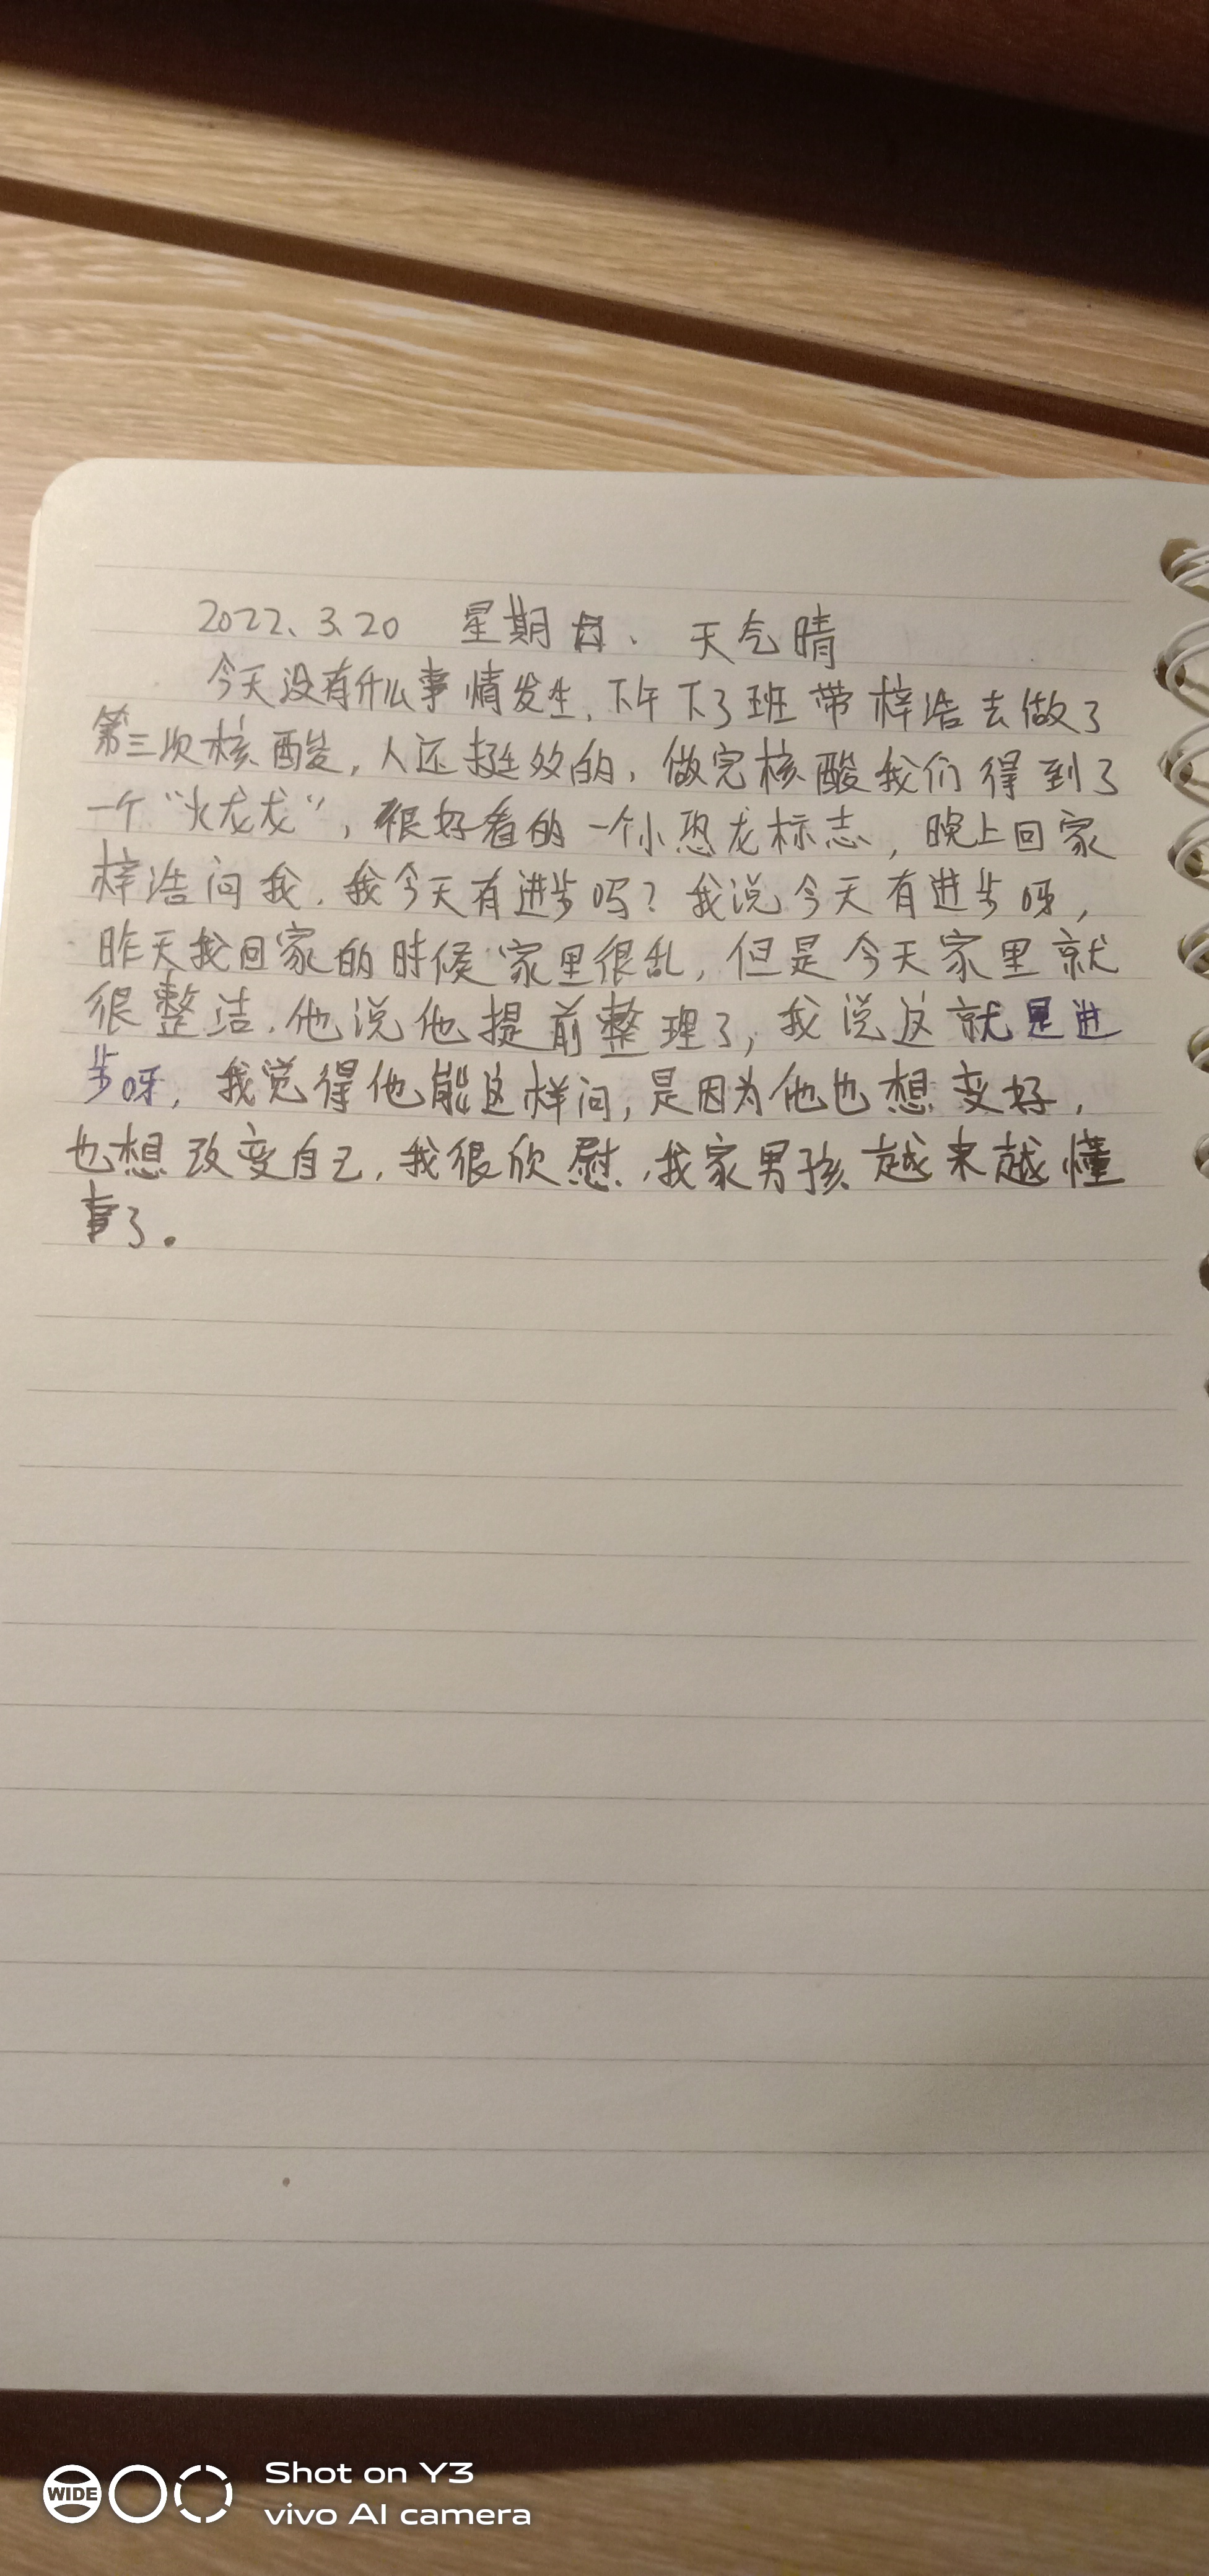 2022、3、20 星期日、天气晴
今天没有什么事情发生,下午下了班带梓浩去做了
第三次核酸,人还挺多的,做完核酸我们得到了
一个“火龙龙”,很好看的一个小恐龙标志,晚上回家
梓浩问我,我今天有进步吗?我说今天有进步呀,
昨天我回家的时候家里很乱,但是今天家里就
很整洁,他说他提前整理了,我说这就是进
步呀,我觉得他能这样问,是因为他也想变好,
也想改变自己,我很欣慰,我家男孩越来越懂
事了。
WIDE
Shot on Y3
vivo AI camera